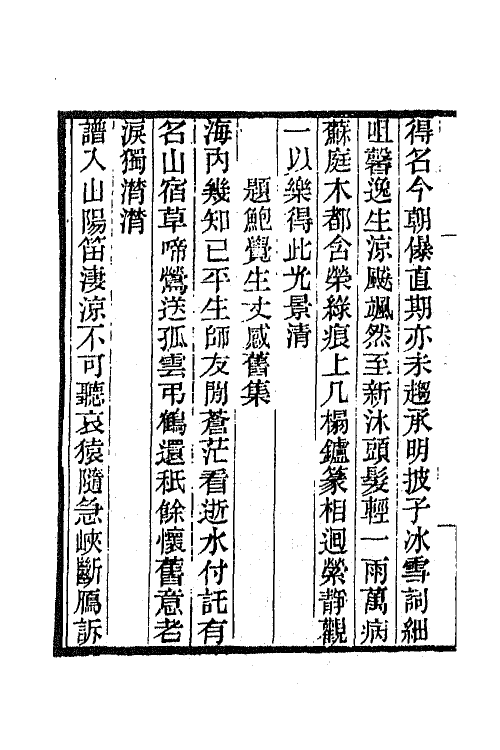 得名今朝傔直期亦未趨承明披子冰雪詞細
咀馨逸生涼颷颯然至新沐頭髮輕一雨萬病
蘇庭木都含榮綠痕上几榻鑪篆相迴縈靜觀
一以樂得此光景清
題鮑覺生丈感舊集
海內幾知己平生師友閒蒼茫看逝水付託有
名山宿草啼鶯送孤雲弔鶴還秪餘懷舊意老
淚獨潸潸
譜入山陽笛淒涼不可聽哀猿隨急峽斷鴈訴